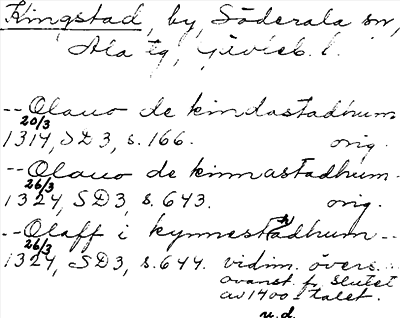 Kingstad, by, Söderala sn,
Ala tg, Gävleb. l.
-- Olauo de kindastadhum
20/3
1314, SD 3, s. 166. orig.
-- Olauo de kinnastadhum --
26/3
1324, SD 3, s. 643. orig.
-- Olaff i kynnestadhum --
26/3
1324, SD 3, s. 644. vidim. övers.
ovanst. fr. slutet
av 1400-talet.
u.d.